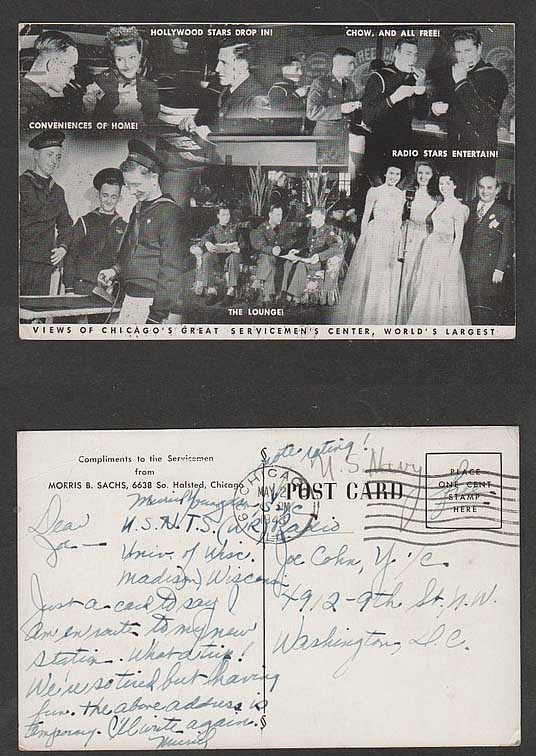 HOLLYWOOD STARS DROP IN!
CHOW, AND ALL FREE!
CONVENIENCES OF HOME!
RADIO STARS ENTERTAIN!
THE LOUNGE!
VIEWS OF CHICAGO'S GREAT SERVICEMEN'S CENTER, WORLD'S LARGEST
Compliments to the Servicemen
from
MORRIS B. SACHS, 6638 So. Halsted, Chicago
note rating!
U.S. Navy
CHICAGO
MAY 2
1943
POST CARD
PLACE
ONE CENT
STAMP
HERE
S 2/C
Dear
Joe—
U.S.N.T.S. (W.R.) Radio
Univ. of Wisc.
Madison, Wisconsin
Just a card to say I
am en route to my new
station. What a trip!
We're so tired but having
fun. The above address is
temporary. I'll write again.
Muriel
Joe Cohn, Y. /c.
4912-9th St. N.W.
Washington, D.C.